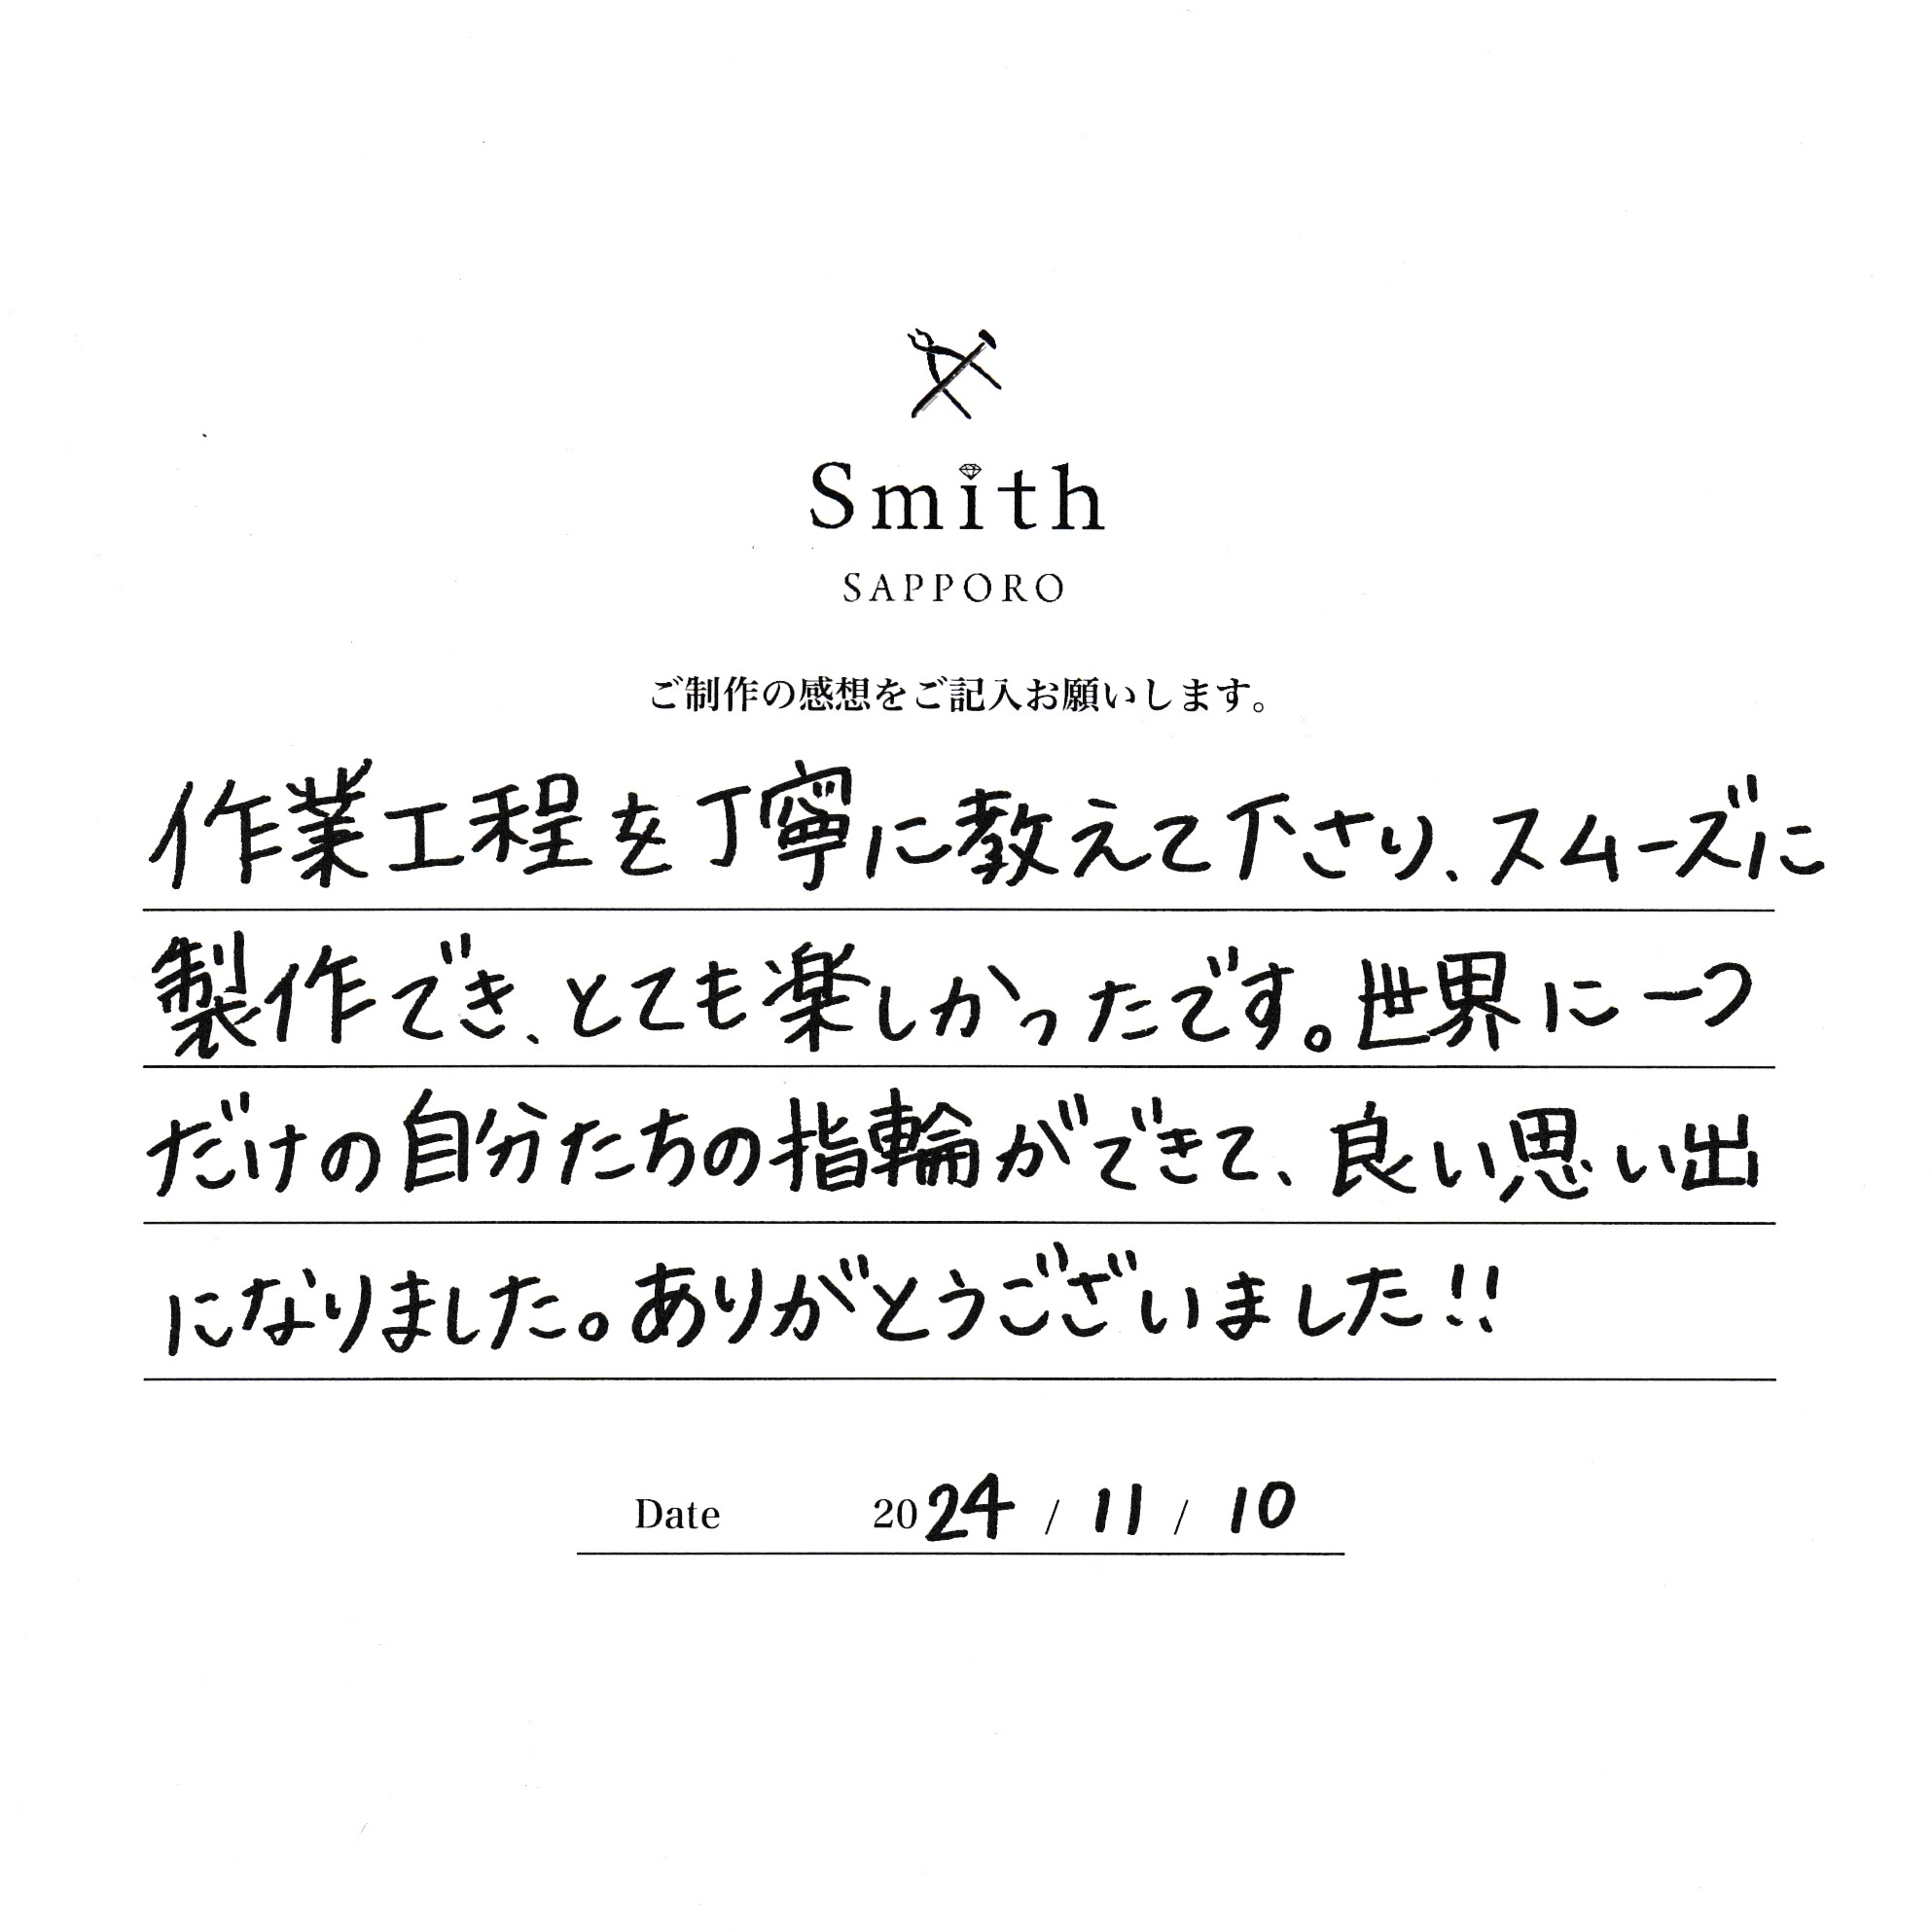 Smith
SAPPORO
ご制作の感想をご記入お願いします。
作業工程を丁寧に教えて下さり、スムーズに
製作でき、とても楽しかったです。世界に一つ
だけの自分たちの指輪ができて、良い思い出
になりました。ありがとうございました!!
Date 2024 / 11 / 10